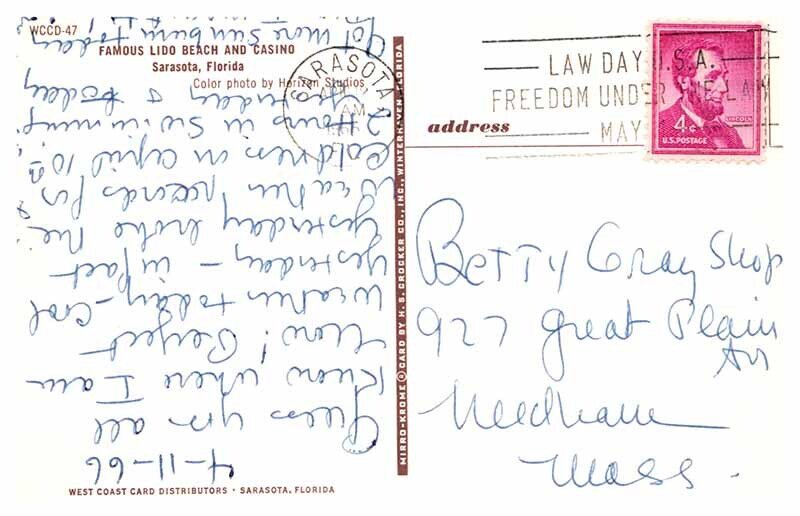 WCCD-47
FAMOUS LIDO BEACH AND CASINO
Sarasota, Florida
Color photo by Horizon Studios
4-11-66
Guess you all
know where I am
now! Perfect
weather today - cool
yesterday - in fact
yesterday broke the
weather records for
coldness in April 10th
2 Hours in Swimming
yesterday & today
Got more Sunburn today
WEST COAST CARD DISTRIBUTORS · SARASOTA, FLORIDA
MIRRO-KROME ® CARD BY H. S. CROCKER CO., INC., WINTERHAVEN, FLORIDA
SARASOTA
AM
LAW DAY U.S.A.
FREEDOM UNDER THE LAW
MAY
4¢
LINCOLN
U.S. POSTAGE
address
Betty Gray Shop
927 Great Plain
Av
Needham
Mass.